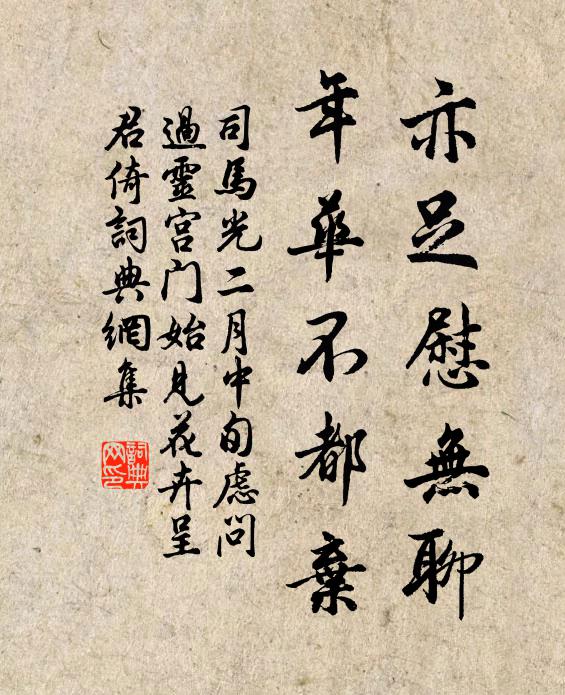 亦足慰無聊
年華不都棄
司馬光二月中旬慮問
過靈宮门始見花卉呈
君倚詞典網集
詞典网印